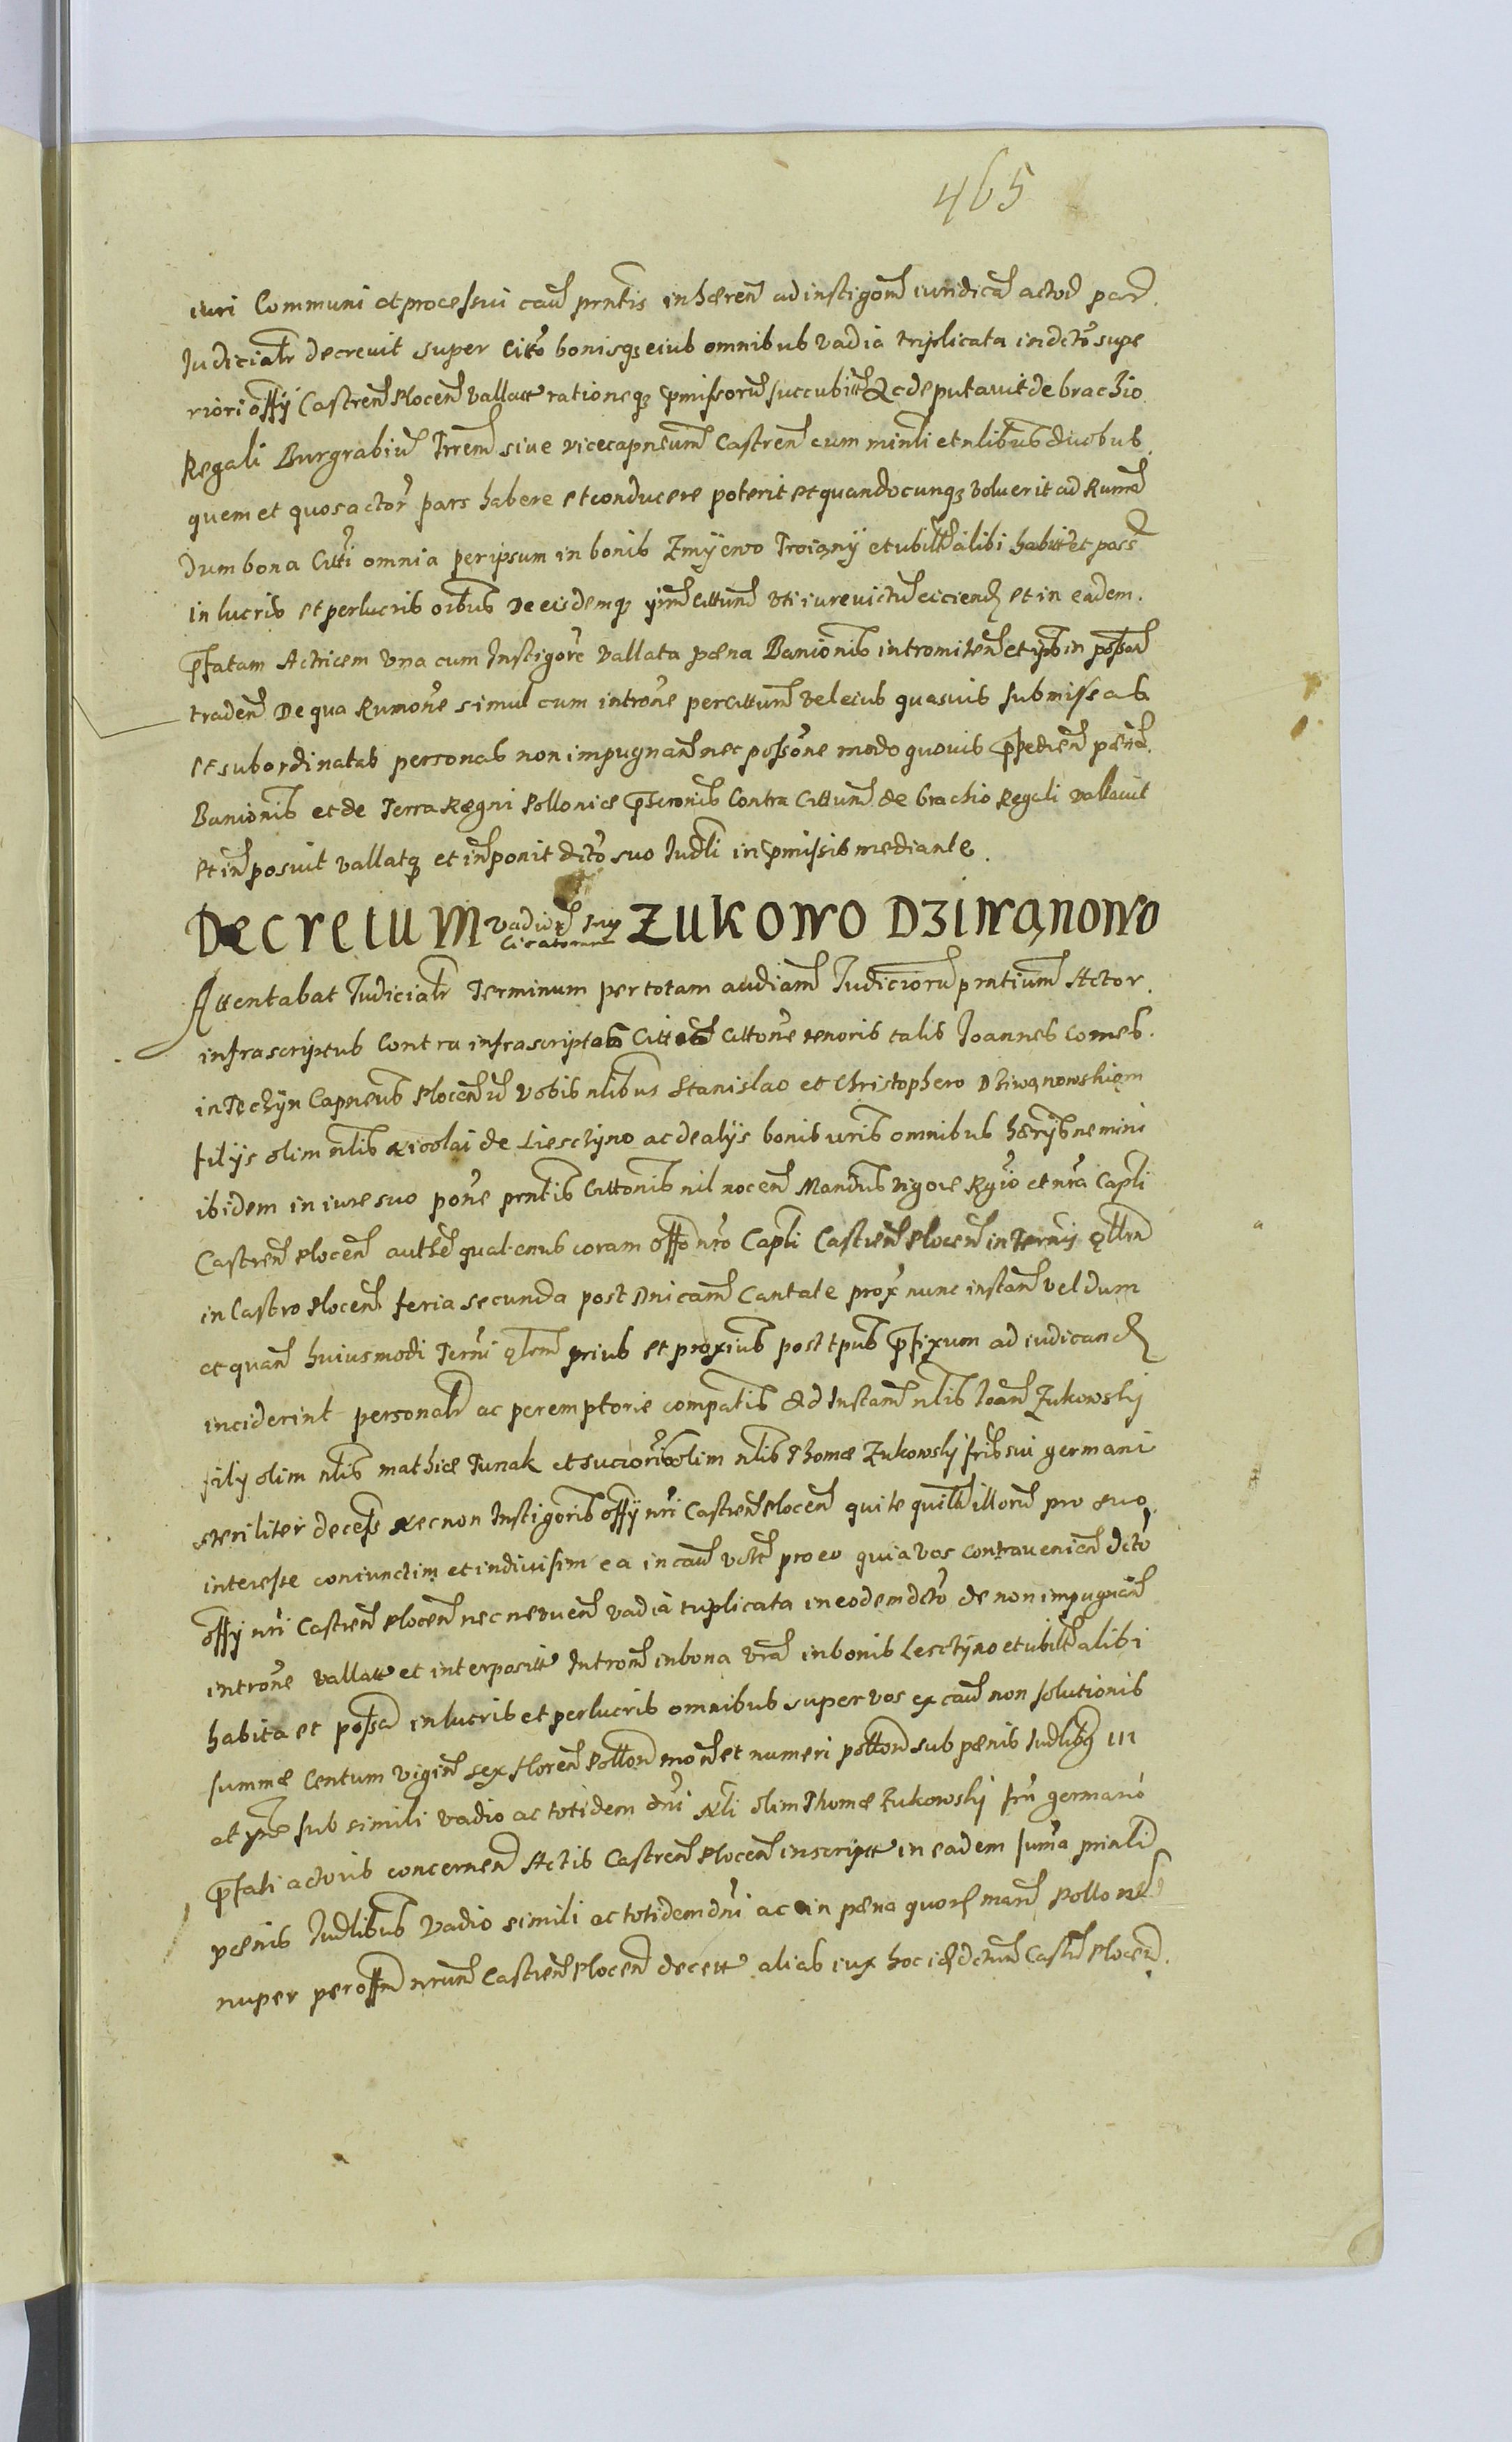 465
iuri Communi et processui caus prntis inhæren ad instigaom iuridicam actoris par
Iudicialr decrevit super Citto bonisq eius omnibus vadia triplicata in dcto supe
riori offy Castren Plocen vallatt rationeq pmissorum succubitt Ac deputavit de brachio
Regali Burgrabium Trrem sive vicecapneum Castren cum minli et nlibus duobus
quem et quos actor pars habere et conducere poterit et quandocunq voluerit ad Rumand
dum bona Citti omnia per ipsum in bonis Zmijewo Troiany et ubilt alibi habitt et poss
in lucris et perlucris oibus De eisdemq ipm Cittum uti iure victum eiciend et in eadem
pfatam Actricem una cum Instigore vallata pœna Banionis intromiten et ipis in posson
traden De qua Rumone simul cum introne per Cittum vel eius quasvis submissas
et subordinatas personas non impugnan nec possone modo quovis ppedien pœna
Banionis et de Terra Regni Pollonice pscronis Contra Cittum de brachio Regali vallavit
et inposuit vallatq et inponit dcto suo Iudli in pmissis mediante
Decretum vadiorum trip
licatorum Zukowo Dziwanowo
Attentabat Iudicialr Terminum per totam audiam Iudiciorum prntium Actor
infrascriptus Contra infrascriptos Cittos Cittone tenoris talis Joannes Comes
in Teczyn Capneus Plocen Vobis nlibus Stanislao et Christophero Dziwanowskiem
filijs olim nlis Nicolai de Liesczyno ac de alijs bonis uris omnibus hæryb nemini
ibidem in iure suo pone prntis Cittonis nil nocen Mandmus vigore Rgio et nra Capli
Castren Plocen authe quatenus coram offo nro Capli Castren Plocen in Termi qllrn
in Castro Plocen feria secunda post Dnicam Cantate prox nunc instan vel dum
et quan huiusmodi Termi qlem prius et proxius post tpus pfixum ad iudicand
inciderint personalr ac peremptorie compatis Ad Instam nlis Joan Zukowsky
fily olim nlis Mathiæ Junak et sucioris olim nlis Thomæ Zukowsky fris sui germani
steriliter decess Necnon Instigoris offy nri Castren Plocen qui te quilt illorum pro suo
interesse coniunctim et indivisim ea in caus vcit pro eo quia vos contravenien dcto
offy nri Castren Plocen nec neruen vadia tuplicata in eodem dcto de non impugnan
introne vallatt et interpositt Intron in bona vra in bonis Lesczyno et ubilt alibi
habita et possa in lucris et perlucris omnibus super vos ex caus non solutionis
summæ Centum viginti sex floren Pollon mon et numeri pollon sub pœnis Iudlibq III
et pne sub simili vadio ac totidem dni Nli olim Thomæ Zukowsky fri germano
pfati actoris concernen Actis Castren Plocen inscriptt in eadem suma prinli
pœnis Iudlibus vadio simili ac totidem dni ac in pœna quor marc Pollon
nuper per offm nrum Castren Plocen decrett alias iux hoc id dctum Castren Plocen